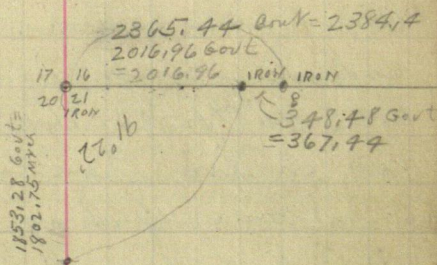 2365.44 Gout = 2384.4
2016.96 Govt
= 2016.96
17 16
IRON IRON
20 21
IRON
8
348.48 Govt
= 367.44
1853.28 Govt =
1802.75